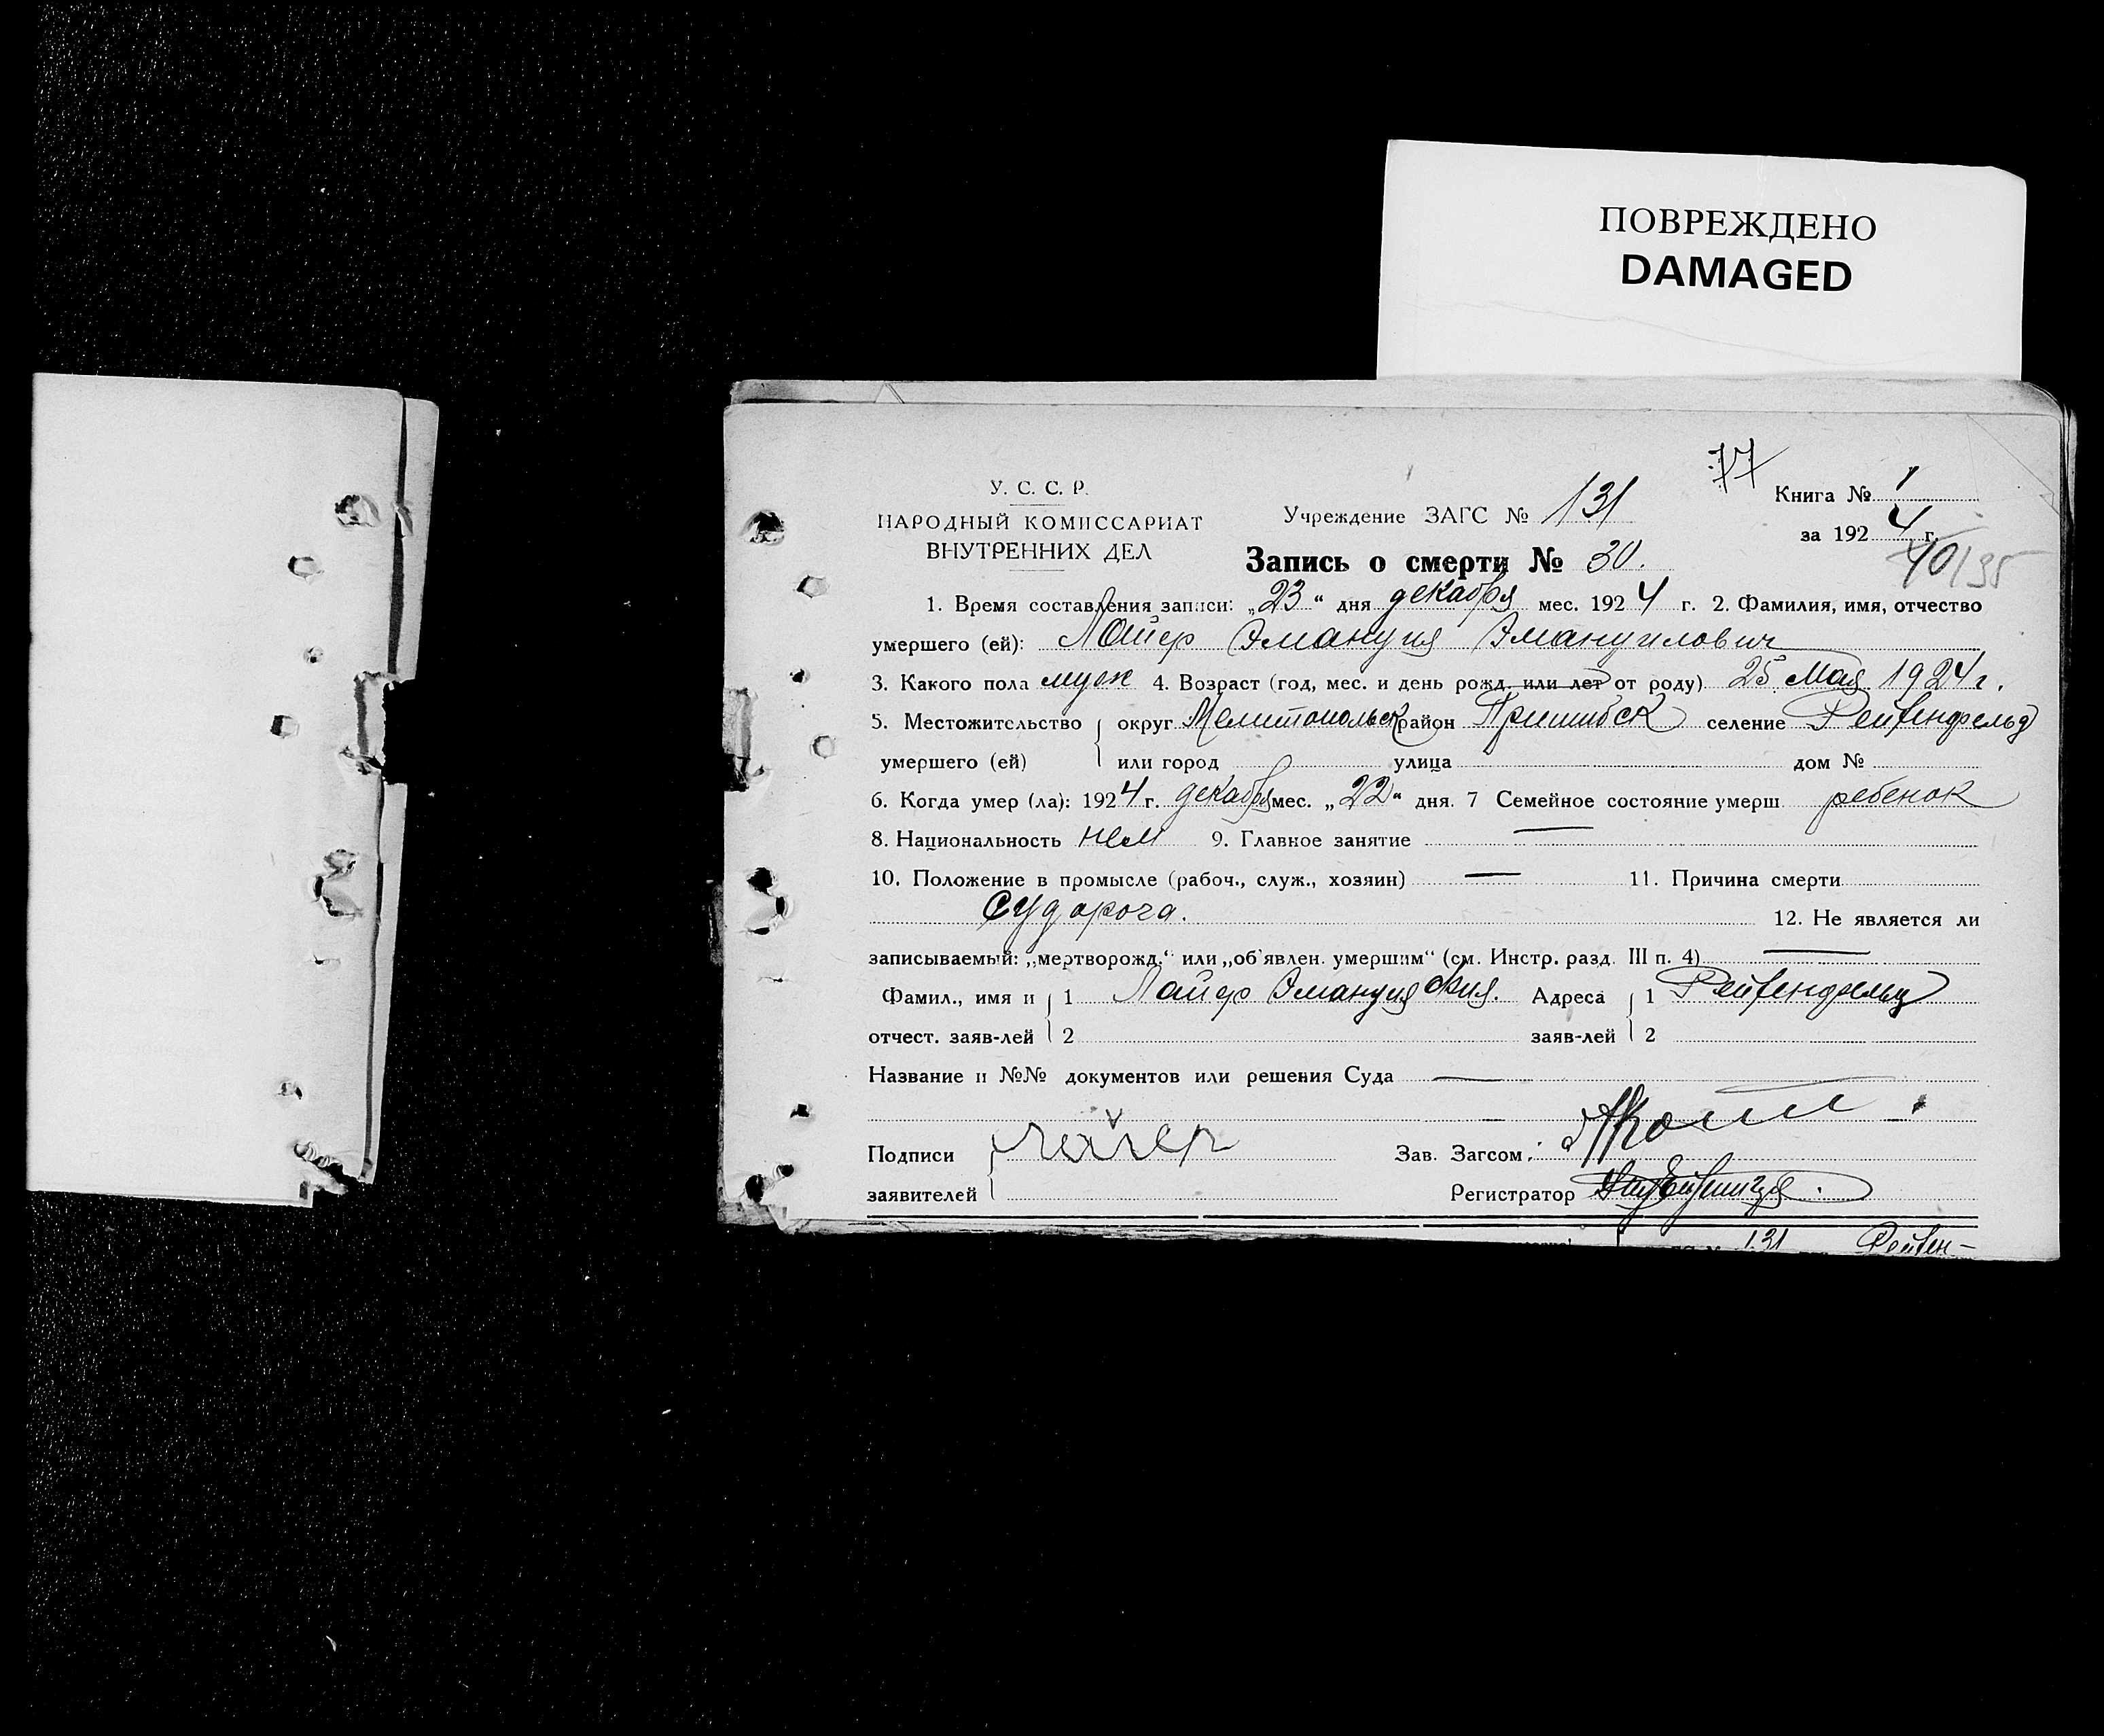 ПОВРЕЖДЕНО
DAMAGED
77
У. С. С. Р.
НАРОДНЫЙ КОМИССАРИАТ
ВНУТРЕННИХ ДЕЛ
Учреждение ЗАГС № 131
Книга № 1
за 1924 г.
40/35
Запись о смерти № 30.
1. Время составления записи: „23“ дня декабря мес. 1924 г. 2. Фамилия, имя, отчество
умершего (ей): Лайер Эмануил Эмануилович
3. Какого пола муж 4. Возраст (год, мес. и день рожд. или лет от роду) 25 Мая 1924 г.
5. Местожительство округ Мелитопольск район Пришибск селение Рейхенфельд
умершего (ей) или город улица дом №
6. Когда умер (ла): 1924 г. декабря мес. „22“ дня. 7 Семейное состояние умерш. ребенок
8. Национальность нем 9. Главное занятие —
10. Положение в промысле (рабоч., служ., хозяин) — 11. Причина смерти
Судорога. 12. Не является ли
записываемый: „мертворожд.“ или „об'явлен. умершим“ (см. Инстр. разд. III п. 4) —
Фамил., имя и 1 Лайер Эмануил Адреса 1 Рейхенфельд
отчест. заяв-лей 2 заяв-лей 2
Название и №№ документов или решения Суда —
Подписи Лайер Зав. Загсом:
заявителей Регистратор
131 Рейхен-